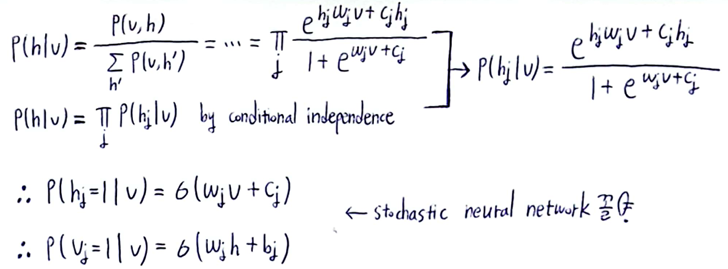 P(h|v) = P(v,h) / Σ_h' P(v,h') = ... = Π_j e^{h_j w_j v + c_j h_j} / 1 + e^{w_j v + c_j} → P(h_j|v) = e^{h_j w_j v + c_j h_j} / 1 + e^{w_j v + c_j}
P(h|v) = Π_j P(h_j|v) by conditional independence
∴ P(h_j=1|v) = σ(w_j v + c_j)
← stochastic neural network
∴ P(v_j=1|v) = σ(w_j h + b_j)